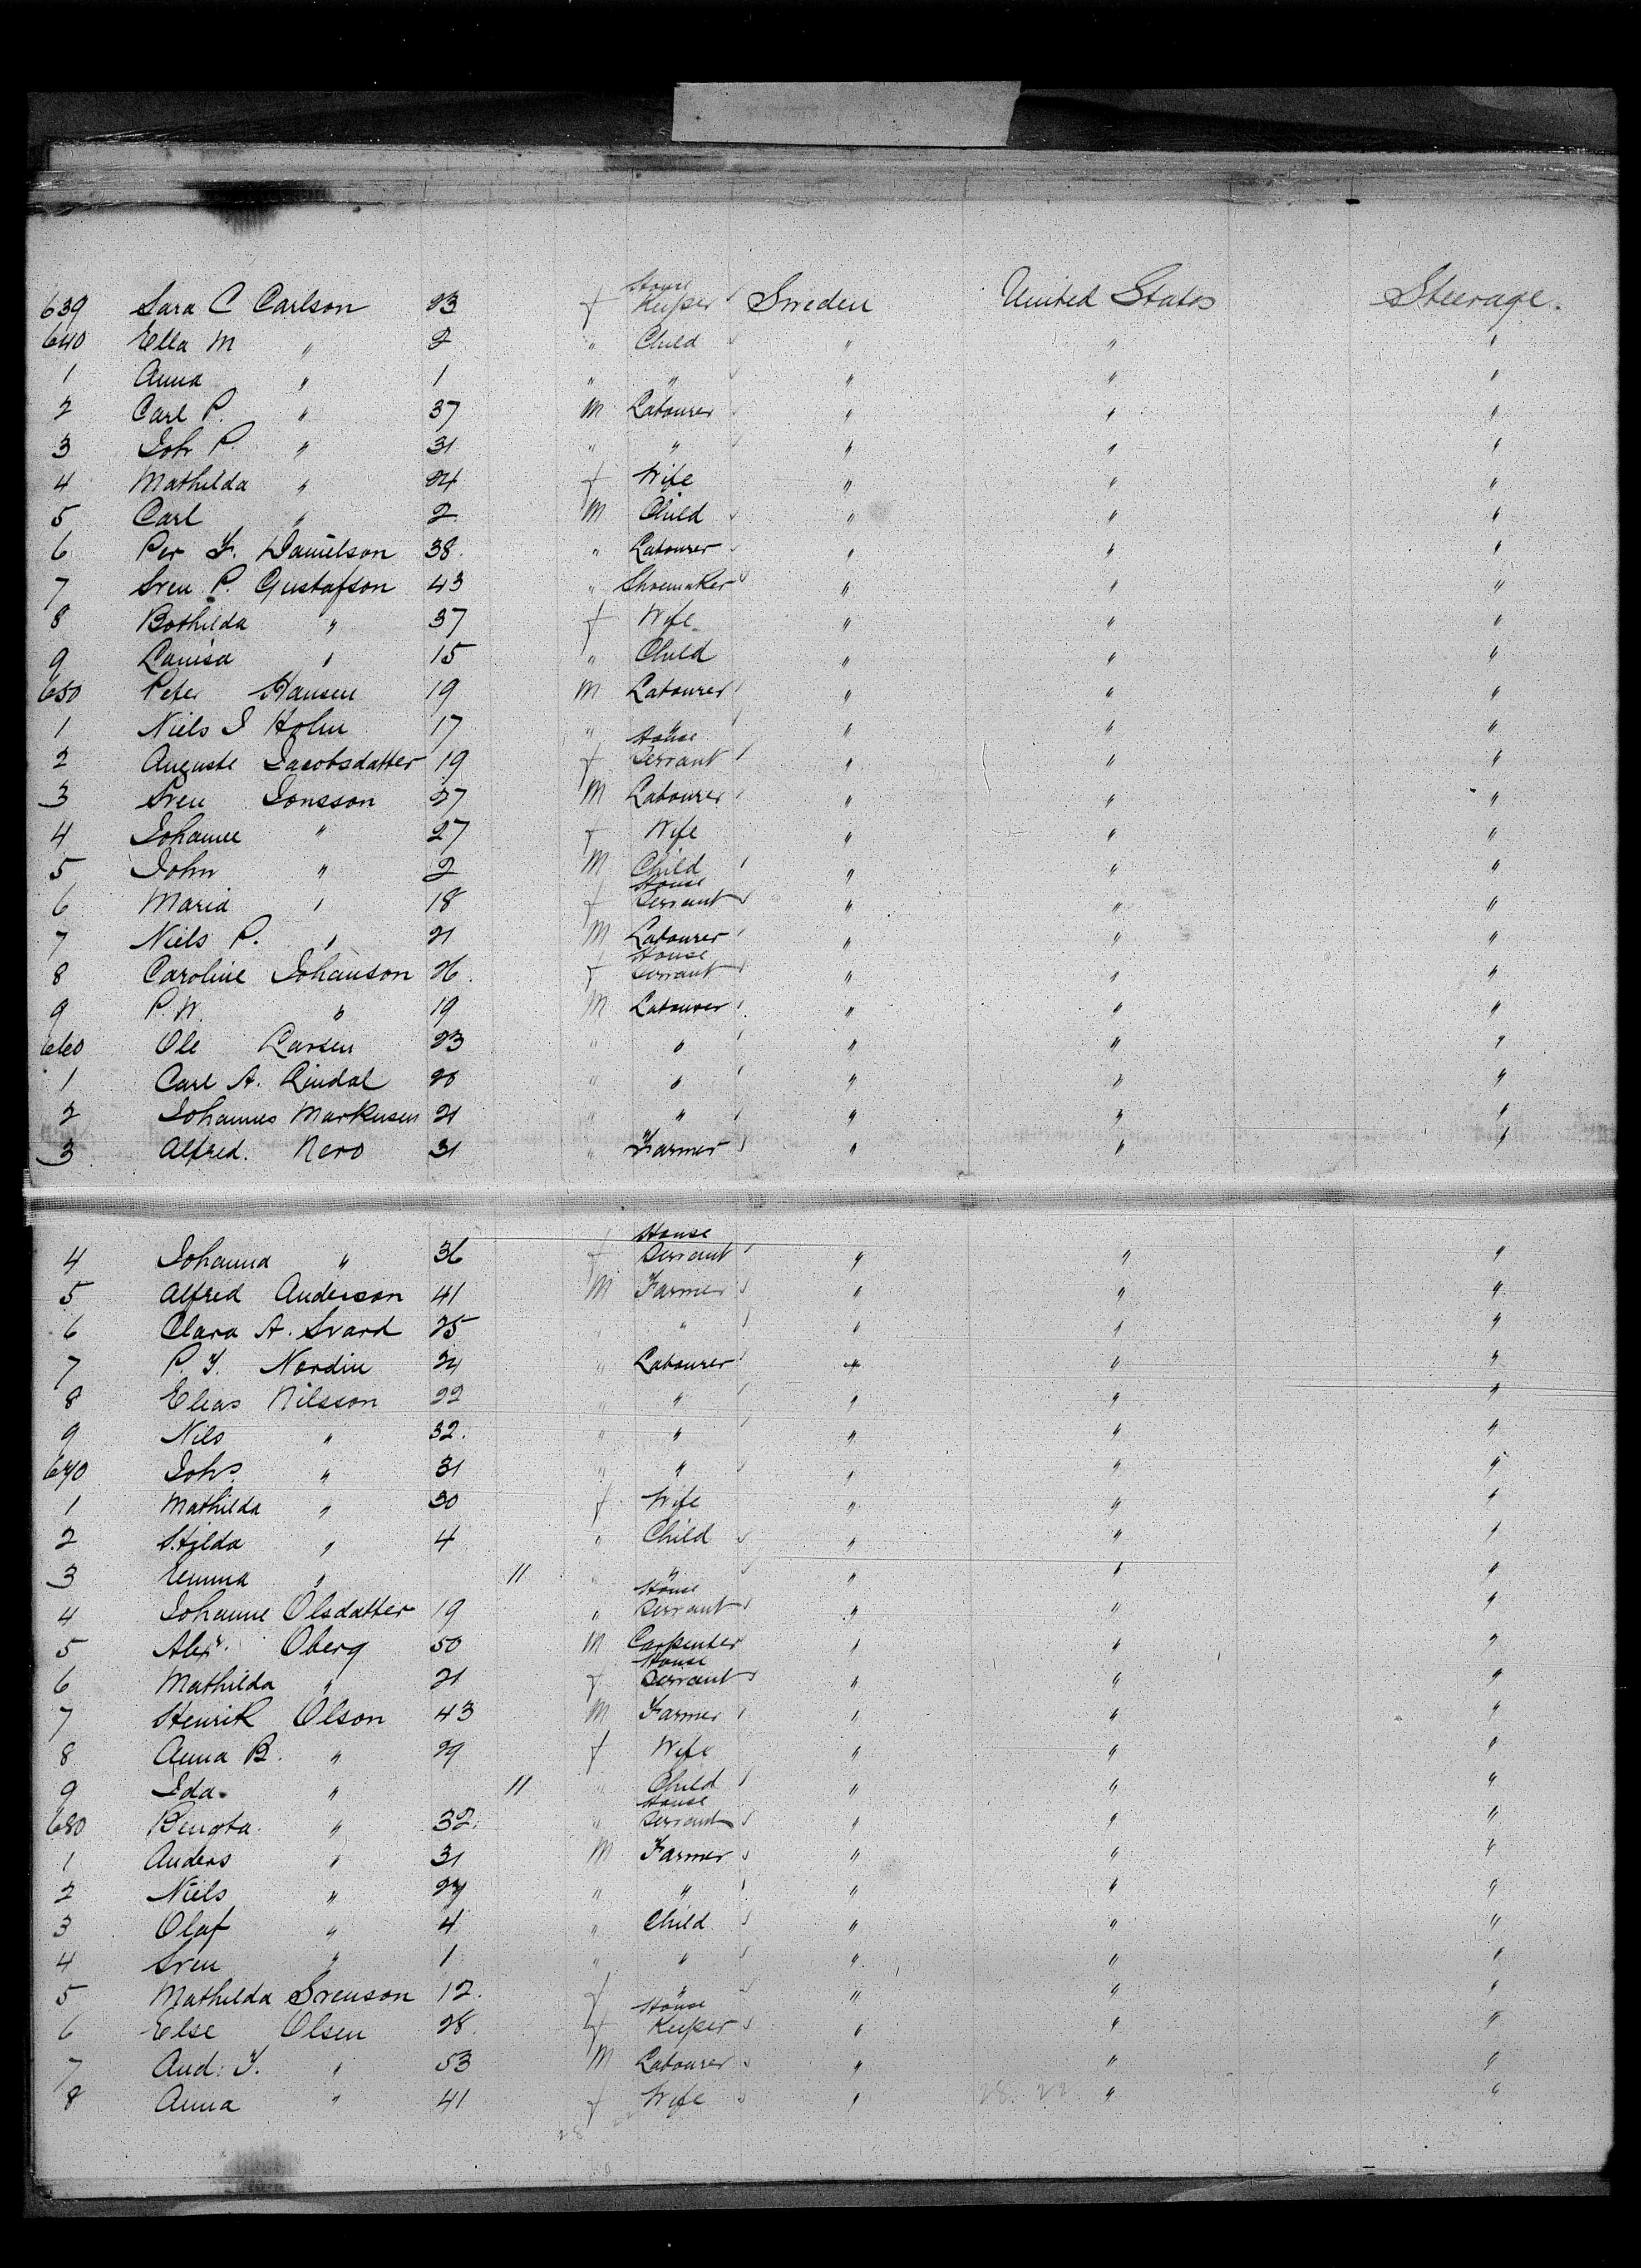 639 Sara C Carlson 23 f House Keeper Sweden United States Steerage.
640 Ella M " 2 " Child " " "
1 Anna " 1 " " " " "
2 Carl P. " 37 M Labourer " " "
3 Joh P. " 31 " " " " "
4 Mathilda " 24 f Wife " " "
5 Carl " 2 M Child " " "
6 Per F. Danielson 38. " Labourer " " "
7 Sven P. Gustafson 43 " Shoemaker " " "
8 Bothilda " 37 f Wife " " "
9 Lauisa " 15 " Child " " "
650 Peter Hansen 19 M Labourer " " "
1 Niels J Holm 17 " " " " "
2 Auguste Jacobsdatter 19 f House Servant " " "
3 Sven Jonsson 27 M Labourer " " "
4 Johanne " 27 f Wife " " "
5 John " 2 M Child " " "
6 Maria " 18 f House Servant " " "
7 Niels P. " 21 M Labourer " " "
8 Caroline Johanson 26. f House Servant " " "
9 P. W. " 19 M Labourer " " "
660 Ole Larsen 23 " " " " "
1 Carl A. Lindal 20 " " " " "
2 Johannes Markusen 21 " " " " "
3 Alfred. Nero 31 " Farmer " " "
4 Johanna " 36 f House Servant " " "
5 Alfred Anderson 41 M Farmer " " "
6 Clara A. Svard 25 " " " " "
7 P. F. Nordin 24 " Labourer " " "
8 Elias Nilsson 22 " " " " "
9 Nils " 32. " " " " "
670 Johs " 31 " " " " "
1 Mathilda " 30 f Wife " " "
2 Hilda " 4 " Child " " "
3 Emma " 11 " " " " "
4 Johanne Olsdatter 19 " House Servant " " "
5 Alexr. Oberg 50 M Carpenter " " "
6 Mathilda " 21 f House Servant " " "
7 Henrik Olson 43 M Farmer " " "
8 Anna B. " 29 f Wife " " "
9 Ida " 11 " Child " " "
680 Bengta " 32. " House Servant " " "
1 Anders " 31 M Farmer " " "
2 Niels " 27 " " " " "
3 Olaf " 4 " Child " " "
4 Sven " 1 " " " " "
5 Mathilda Svenson 12. f " " " "
6 Else Olsen 28. f House Keeper " " "
7 And: F. " 53 M Labourer " " "
8 Anna " 41 f Wife " " "
28. 22